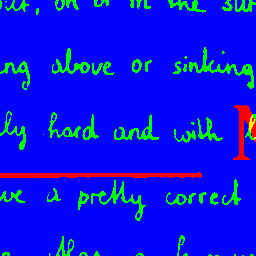 on or in the sur
ng above or sinking
ly hard and with
ve a pretty correct